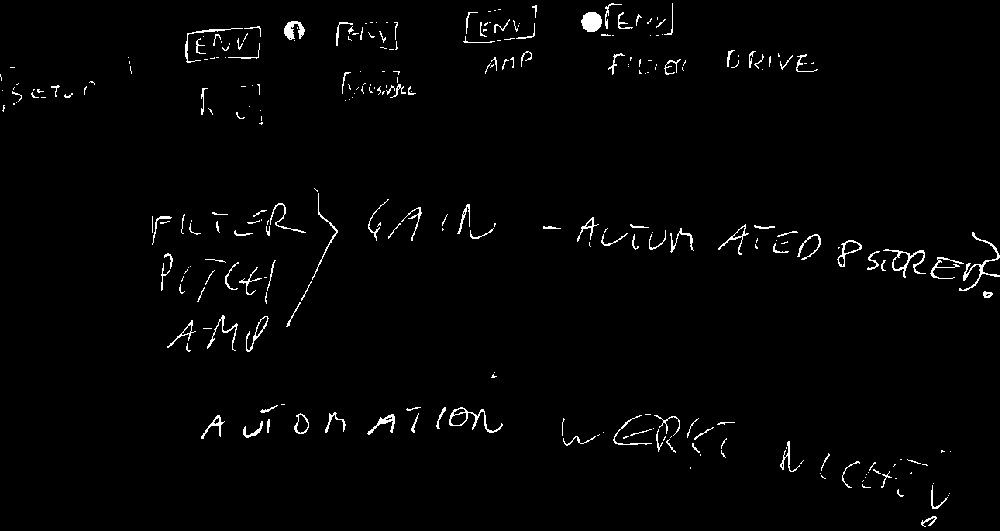 [ENV] [ENV] [ENV] [ENV]
SETUP AMP FILTER DRIVE
FILTER } GAIN - AUTOMATED & STORED?
PITCH
AMP
AUTOMATION WERKT NICHT!